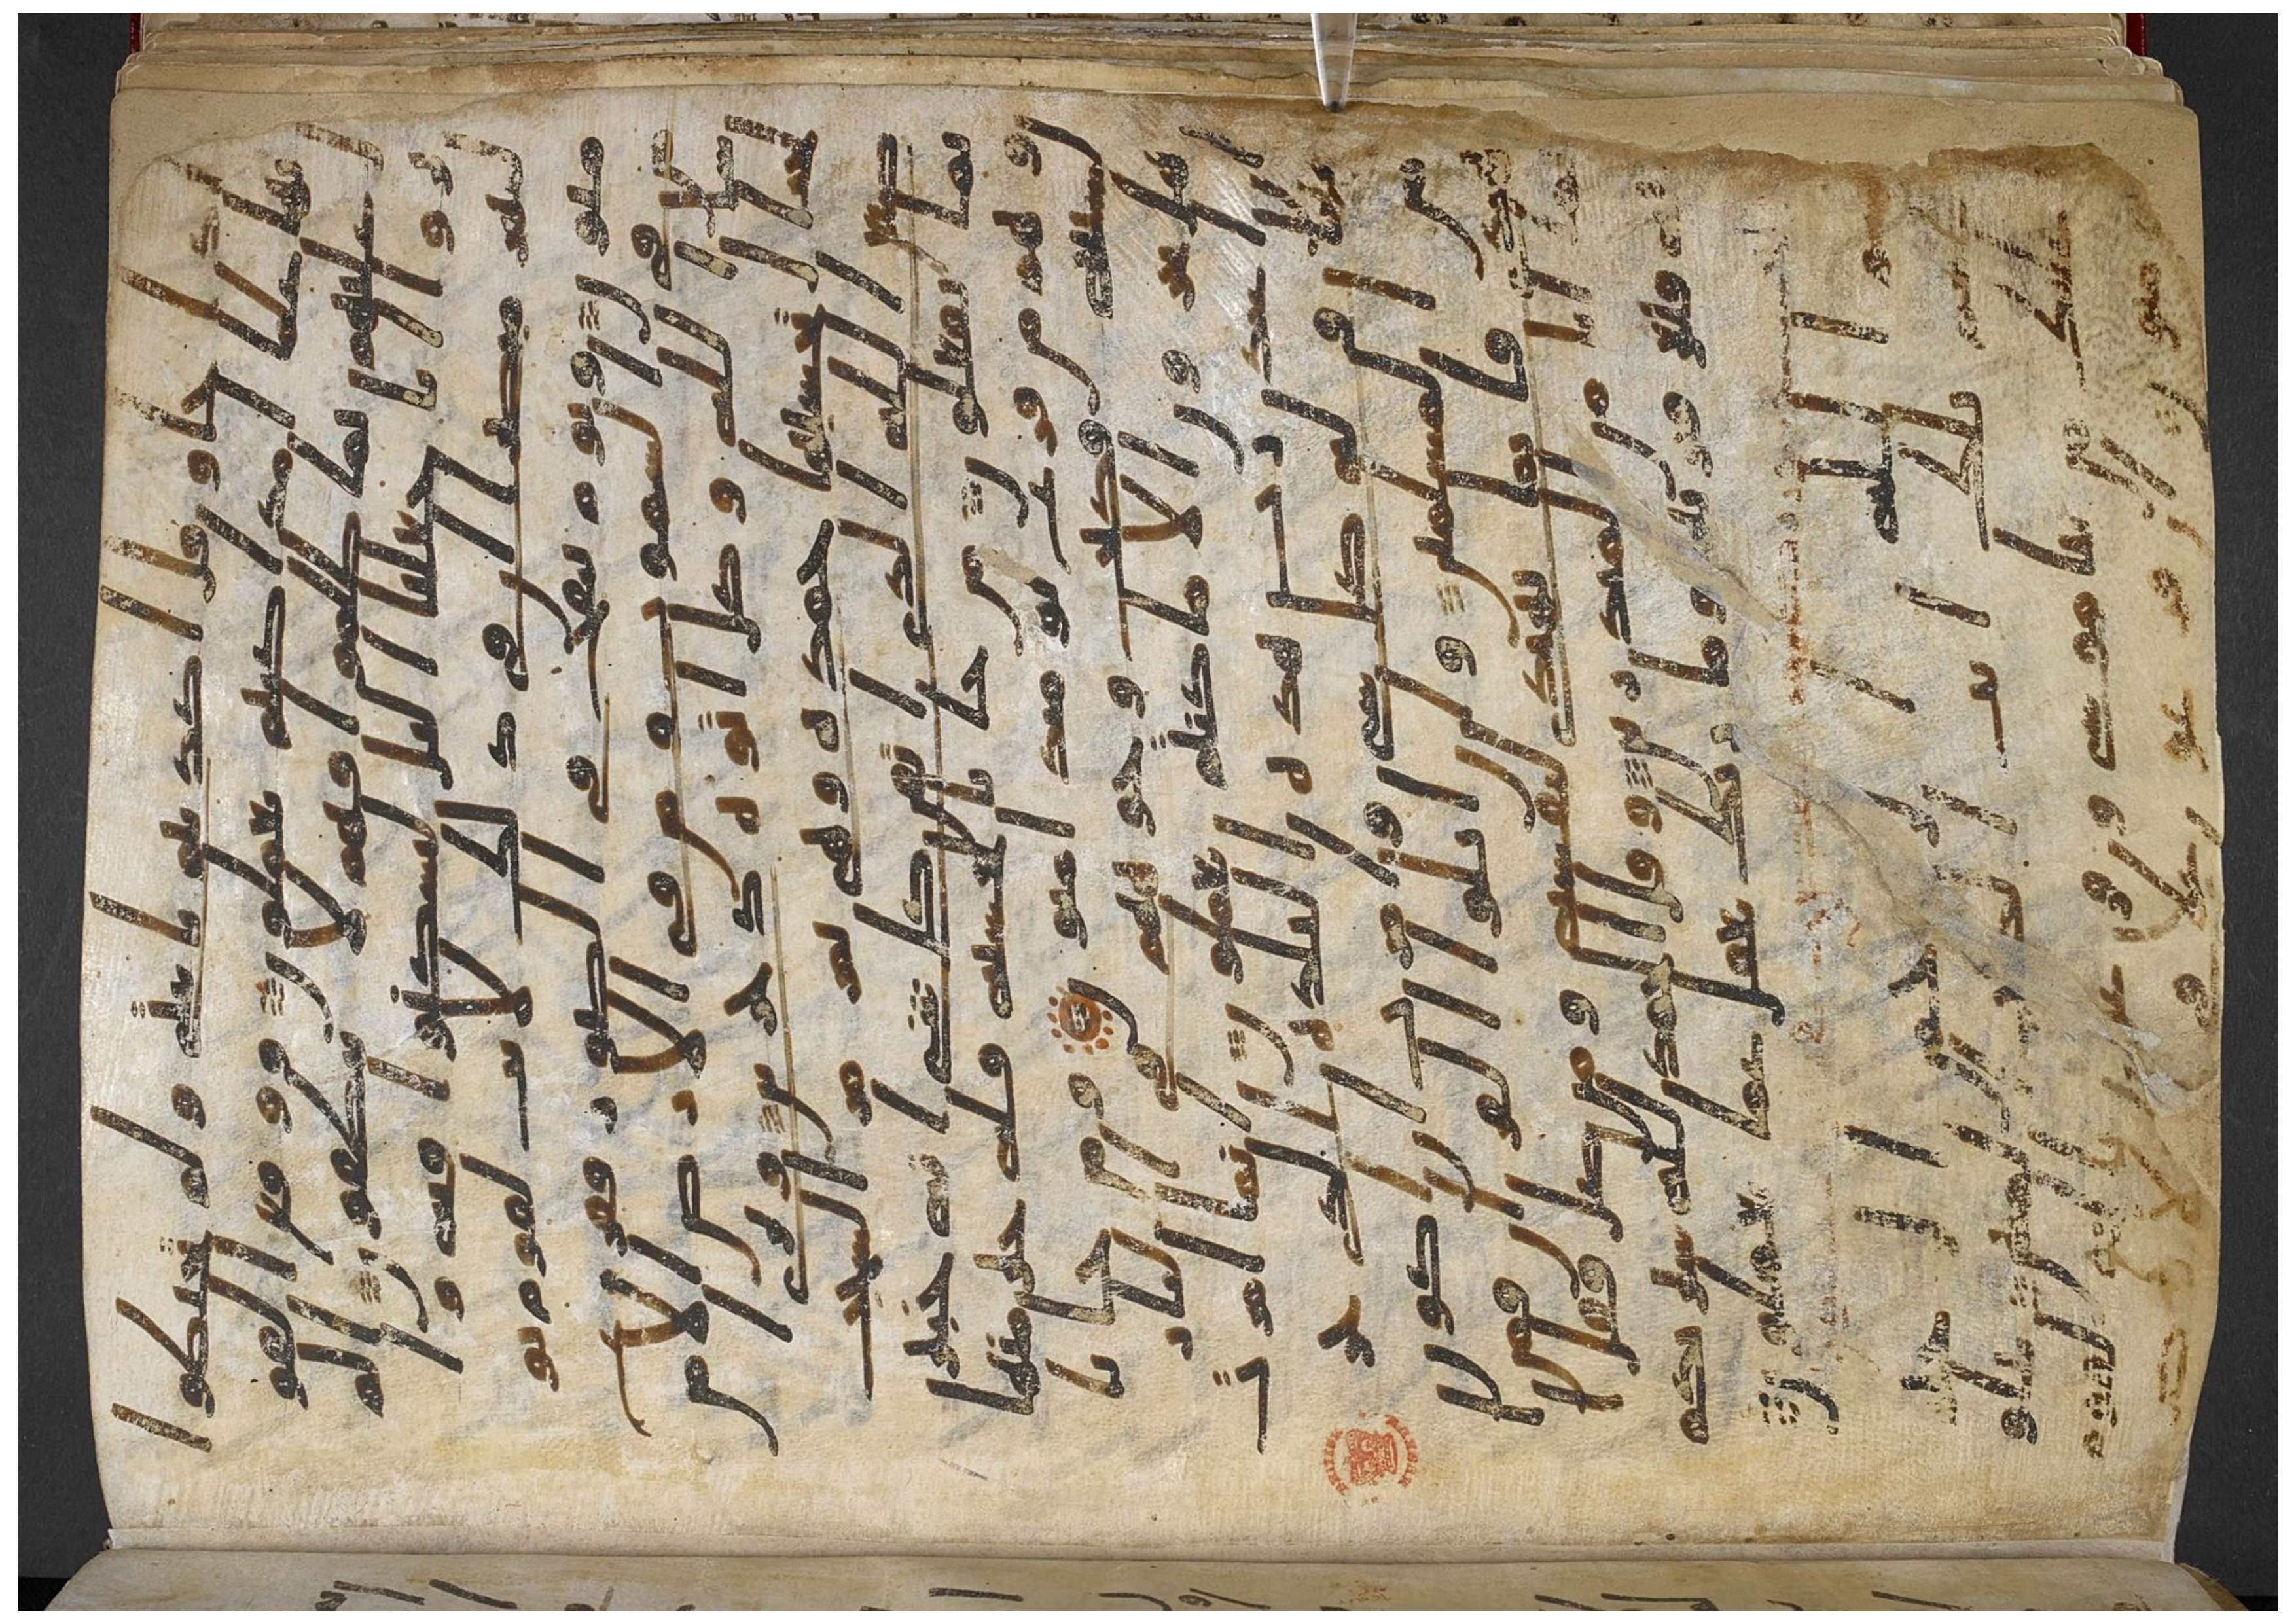 حتى اذا جاو قال اكذبتم بايتي ولم تحيطوا
بها علما اما ذا كنتم تعملون ووقع القو
ل عليهم بما ظلموا فهم لا ينطقون الم
يروا انا جعلنا اليل ليسكنوا فيه و
النهر مبصرا ان في ذلك لايت لقوم يو
منون ويوم ينفخ في الصور ففزع
من في السموت ومن في الارض الا من
شا الله وكل اتوه دخرين وترى ا
لجبال تحسبها جمده وهي تمر مر السحب
صنع الله الذي اتقن كل شي انه خبير
بما تفعلون من جا بالحسنه فله خير منها
وهم من فزع يومئذ امنون ومن جا
بالسيئه فكبت وجوههم في النار
هل تجزون الا ما كنتم تعملون انما امرت
ان اعبد رب هذه البلده الذي حر
مها وله كل شي وامرت ان اكون
من المسلمين وان اتلوا القران
فمن اهتدى فانما يهتدي لنفسه ومن ضل
فقل انما انا من المنذرين وقل الحمد لله سير
يكم ايته فتعرفونها وما ربك بغفل عما تعملون
بسم الله الرحمن الرحيم
طسم تلك ايت الكتب المبين نتلوا
عليك من نبا موسى وفرعون بالحق لقوم
يومنون ان فرعون علا في